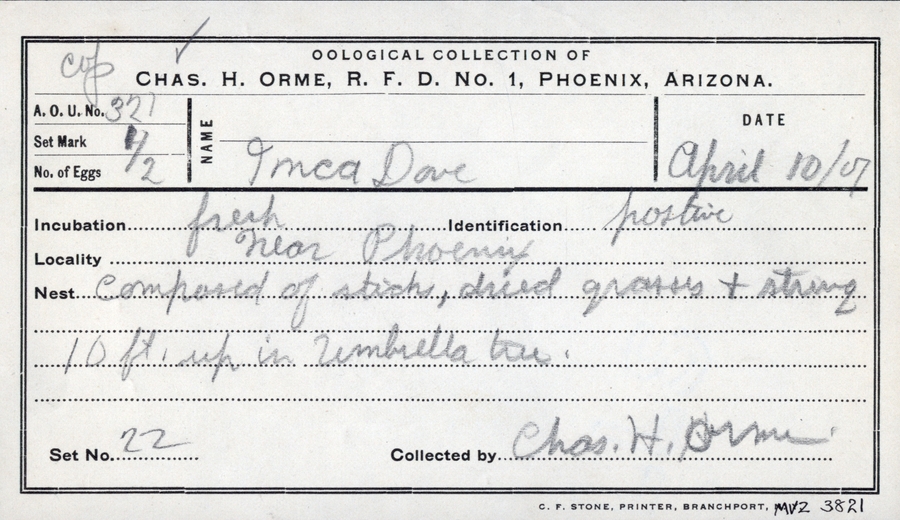 cop ✓
OOLOGICAL COLLECTION OF
CHAS. H. ORME, R. F. D. NO. 1, PHOENIX, ARIZONA.
A. O. U. No. 321
Set Mark 1/2
No. of Eggs 2
NAME
Inca Dove
DATE
April 10/07
Incubation fresh Identification postive
Locality near Phoenix
Nest composed of sticks, dried grasses + string
10 ft. up in Umbrella tree.
Set No. 22 Collected by Chas. H. Orme
C. F. STONE, PRINTER, BRANCHPORT, MVZ 3821